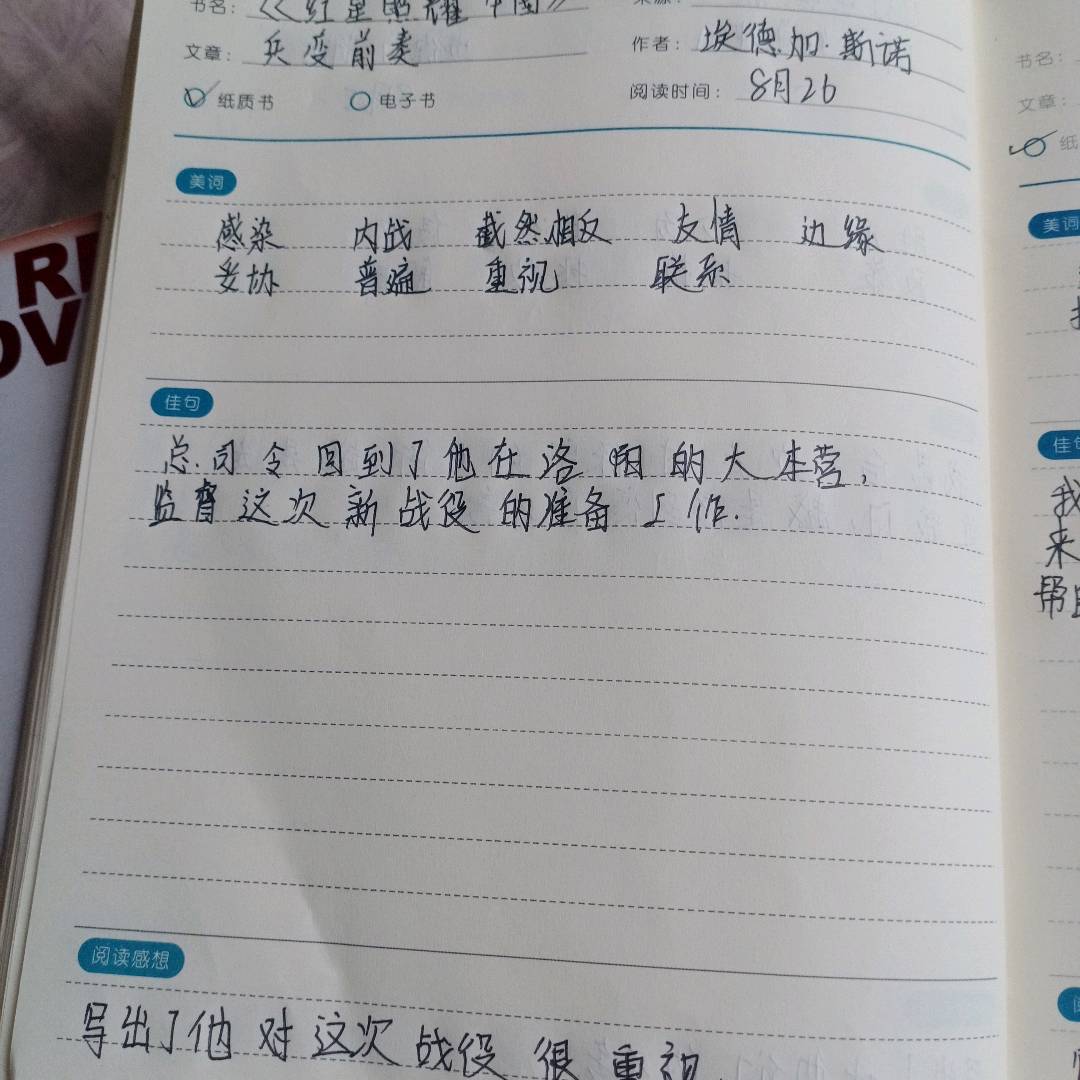 书名：《红星照耀中国》
来源：
文章：兵变前奏
作者：埃德加·斯诺
纸质书 电子书
阅读时间：8月26
美词
感染 内战 截然相反 友情 边缘
妥协 普遍 重视 联系
佳句
总司令回到了他在洛阳的大本营，
监督这次新战役的准备工作.
阅读感想
写出了他对这次战役很重视.
RE
OV
书名：
文章：
纸
美词
佳句
我
来
帮助